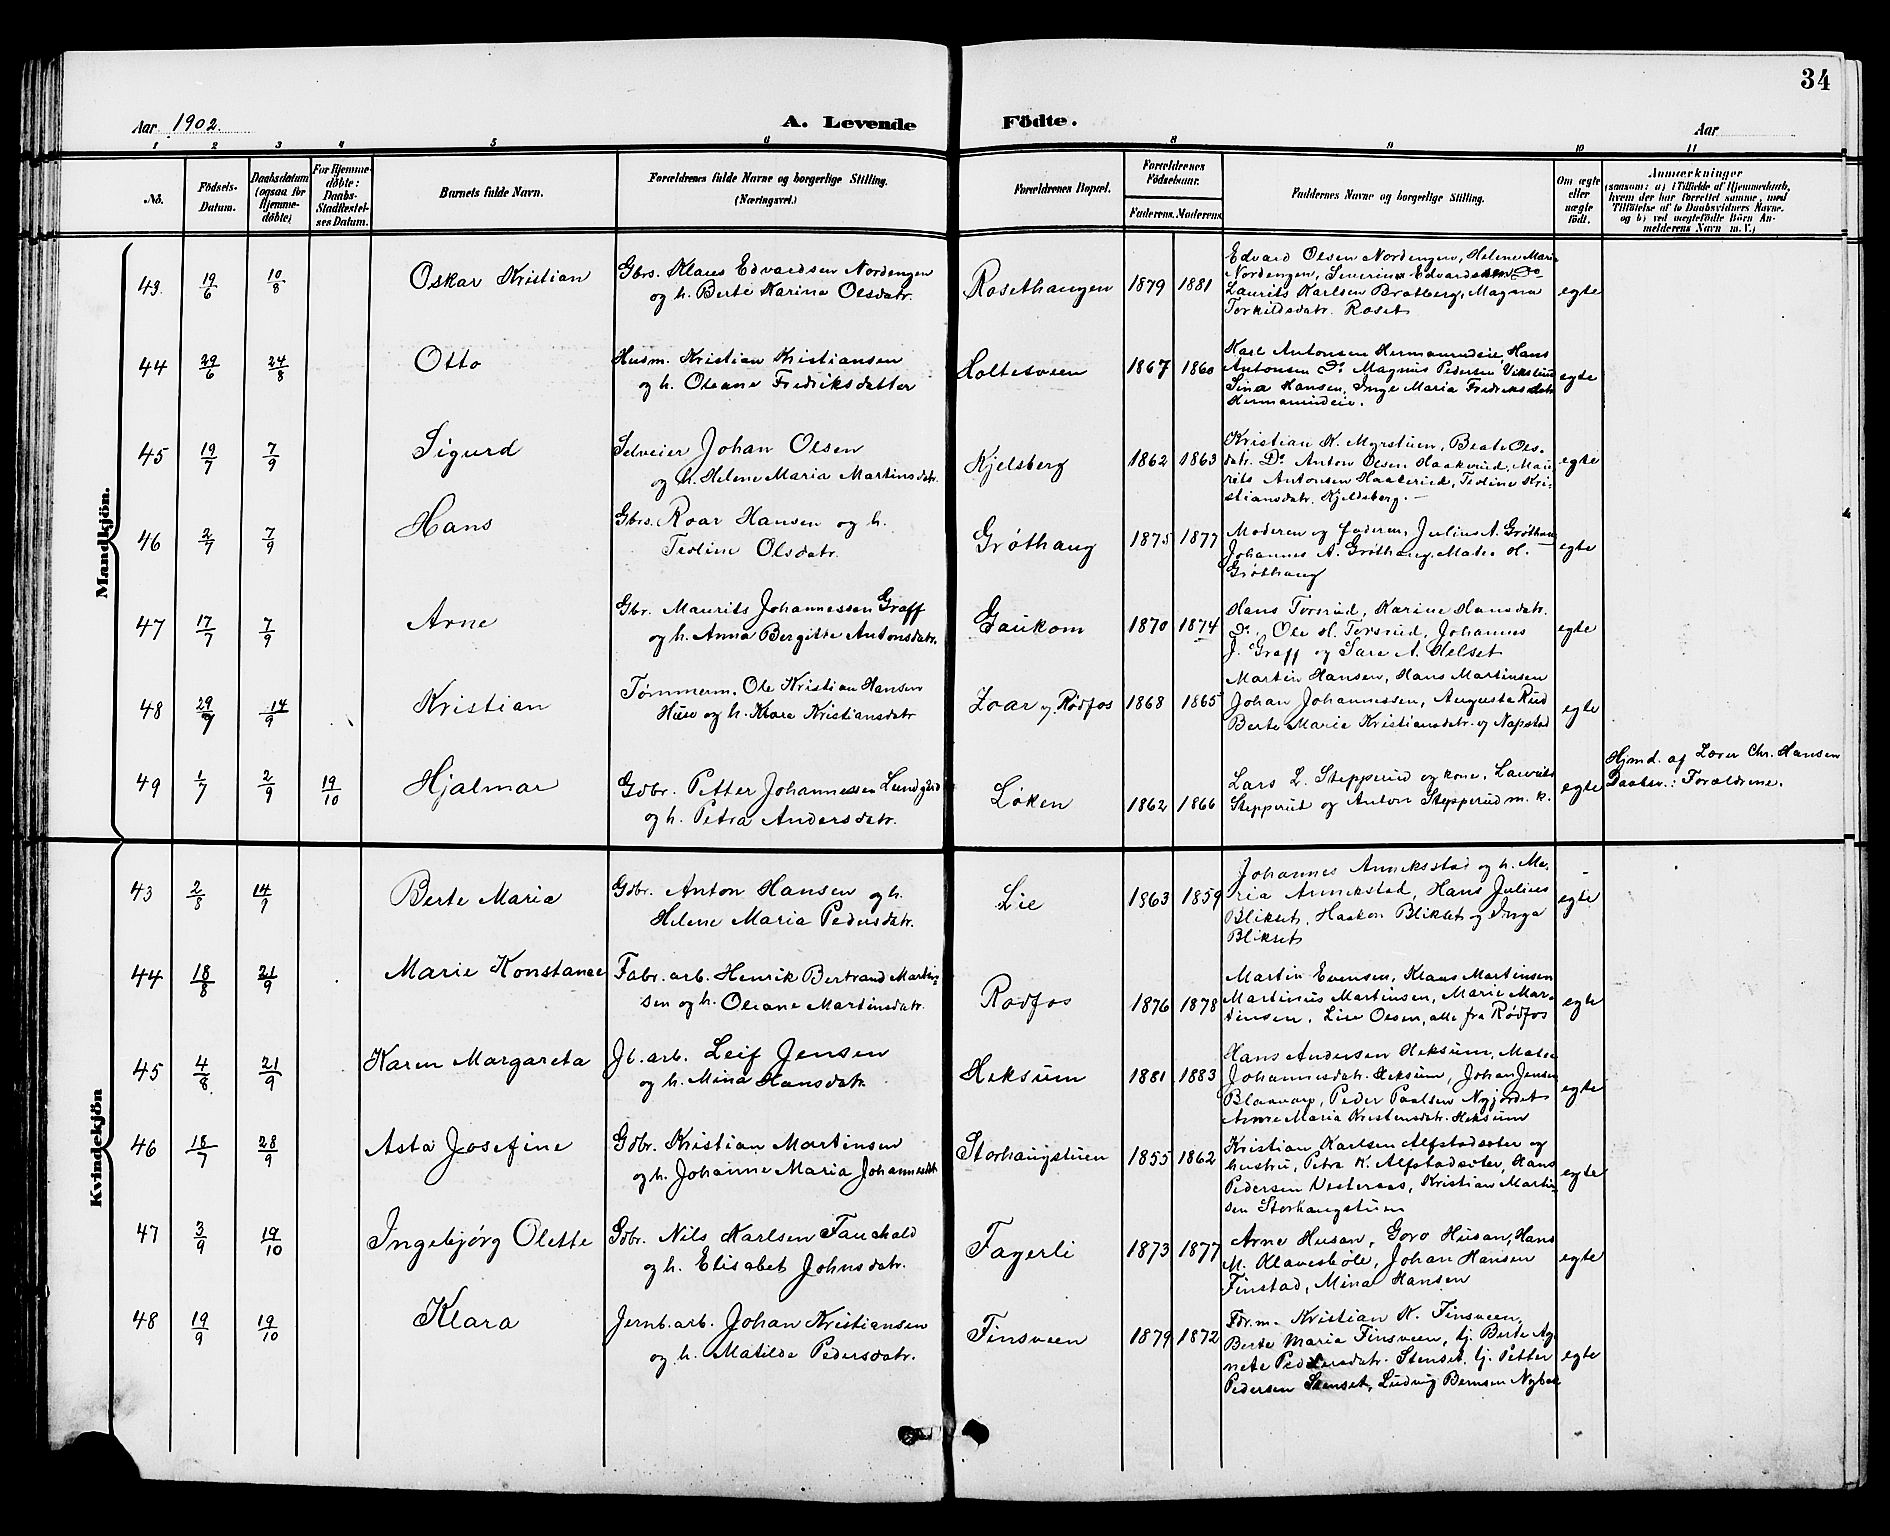 34
Aar 1902.
A. Levende Födte.
Aar
1 2 3 4 5 6 8 9 10 11
No.
Födsels-Datum.
Daabsdatum (ogsaa for Hjemme-døbte)
For Hjemme-døbte: Daabs-Stadfæstel-ses Datum.
Barnets fulde Navn.
Forældrenes fulde Navne og borgerlige Stilling. (Næringsvei.)
Forældrenes Bopæl.
Forældrenes Födselsaar.
Faderens. Moderens.
Faddernes Navne og borgerlige Stilling.
Om ægte eller uægte födt.
Anmærkninger
(saasom: a) i Tilfælde af Hjemmedaab,
hvem der har forrettet samme, med
Tilföielse af to Daabsvidners Navne.
og b) ved uægtefödte Börn An-
melderens Navn m. V.)
Mandkjön.
43. 19/6 10/8 Oskar Kristian
Gbrs. Klaus Edvardsen Nordengen
og h. Berte Karina Olsdatr.
Rosethaugen 1879 1881
Edvard Olsen Nordengen, Helene Marie
Nordengen, Severin Edvardsen Do
Laurits Karlsen Bratberg, Magna
Torkildsdatr. Roset
egte
44 29/6 24/8 Otto
Husm. Kristian Kristiansen
og h. Oleane Fredriksdatter
Holtesveen 1867 1860
Karl Antonsen Hermanrudeie, Hans
Antonsen Do Magnus Pedersen
Sina Hansen, Inge Maria Fredriksdatr
Hermanrudeie.
egte
45 19/7 7/9 Sigurd
Selveier Johan Olsen
og h. Helene Maria Martinsdatr.
Kjelsberg 1862 1863
Kristian K. Myrstuen, Beate Ols-
datr. Do Anton Olsen Haakerud, Mau-
rits Antonsen Haakerud, Teoline Kri-
stiansdatr. Kjeldsberg. —
egte
46 2/7 7/9 Hans
Gbrs. Roar Hansen og h.
Teoline Olsdatr.
Grøthaug 1875 1877
Moderen og faderen, Julius A. Grøthaug
Johannes A. Grøthaug, Matea H.
Grøthaug
egte
47 17/7 7/9 Arne
Gbr. Maurits Johannessen Graff
og h. Anna Bergitte Antonsdatr.
Gaukom 1870 1874
Hans Torsrud, Karine Hansdatr.
Do, Ole H. Torsrud, Johannes
J. Graff og Sare A. Helset
egte
48 29/7 14/9 Kristian
Tømmerm. Ole Kristian Hansen
Huse og h. Klara Kristiansdatr
Zoar v. Rødfos 1868 1865
Martin Hansen, Hans Martinsen
Johan Johannessen, Augusta Rud
Berte Marie Kristiansdatr. og Napstad
egte
49 1/7 2/9 19/10 Hjalmar
Gdbr. Petter Johannessen Lundgård
og h. Petra Andersdatr.
Løken 1862 1866
Lars L. Stepperud og kone, Laurits
Stepperud og Anton Stepperud m. k.
egte
Hjmd. af Lærer Chr. Hansen
Daabsv.: Forældrene.
Kvindekjön
43 2/8 14/9 Berte Maria
Gdbr. Anton Hansen og h.
Helene Maria Pedersdatr.
Lie 1863 1859
Johannes Anneksstad og h. Ma-
ria Annekstad, Hans Julius
Blikset, Haakon Blikset og Inga
Blikset
egte
44 18/8 21/9 Marie Konstance
Fabr. arb. Henrik Bertrand Martin-
sen og h. Oleane Martinsdatr.
Rødfos 1876 1878
Martin Evensen, Klaus Martinsen
Martinus Martinsen, Marie Mar-
tinsen, Lise Olsen, alle fra Rødfos
egte
45 4/8 21/9 Karen Margareta
Jb. arb. Leif Jensen
og h. Mina Hansdatr.
Heksum 1881 1883
Hans Andersen Heksum, Matea
Johannesdatr. Heksum, Johan Jensen
Blaavarp, Peder Paalsen Nyjordet
Anne Maria Kristensdatr. Heksum
egte
46 18/7 28/9 Asta Josefine
Gdbr. Kristian Martinsen
og h. Johanne Maria Johannesdtr
Storhaugstuen 1855 1862
Kristian Karlsen Alfstadsæter og
hustru, Petra K. Alfstadsæter, Hans
Pedersen Vesteraas, Kristian Martin-
sen Storhaugstuen
egte
47 3/9 19/10 Ingebjørg Olette
Gdbr. Nils Karlsen Fauchald
og h. Elisabet Johnsdatr.
Fagerli 1873 1877
Arne Husan, Goro Husan, Hans
M. Klavesbøle, Johan Hansen
Finstad, Mina Hansen
egte
48 19/9 19/10 Klara
Jernb. arb. Johan Kristiansen
og h. Matilde Pedersdatr.
Finsveen 1879 1872
Før. m. Kristian K. Finsveen,
Berte Maria Finsveen, tj. Berte Ag-
nete Pedersdatr. Stenset, tj. Petter
Pedersen Stenset, Ludvig Bernsen Nybak
egte